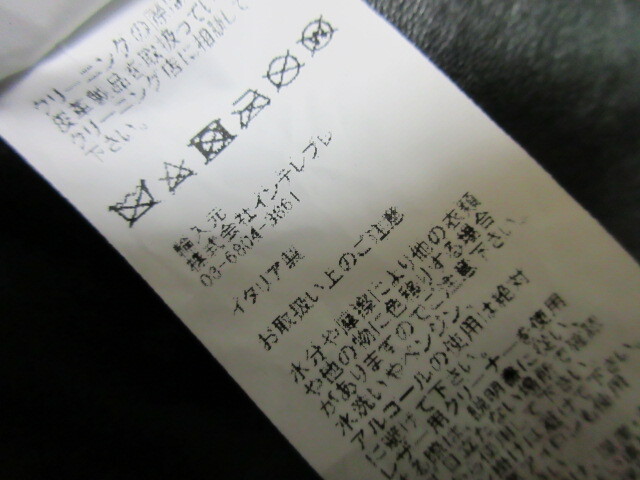 クリーニングの際は
皮革製品を取扱ってい
クリーニング店に相談して
下さい。
輸入元
株式会社インテレプレ
03-6804-3861
イタリア製
お取扱い上のご注意
水分や摩擦により他の衣類
や他の物に色移りする場合
がありますのでご注意下さい。
水洗いやベンジン、
アルコールの使用は絶対
に避けて下さい。
レザー用クリーナーを使用
する際は、説明書に従い、
目立たない場所で確認